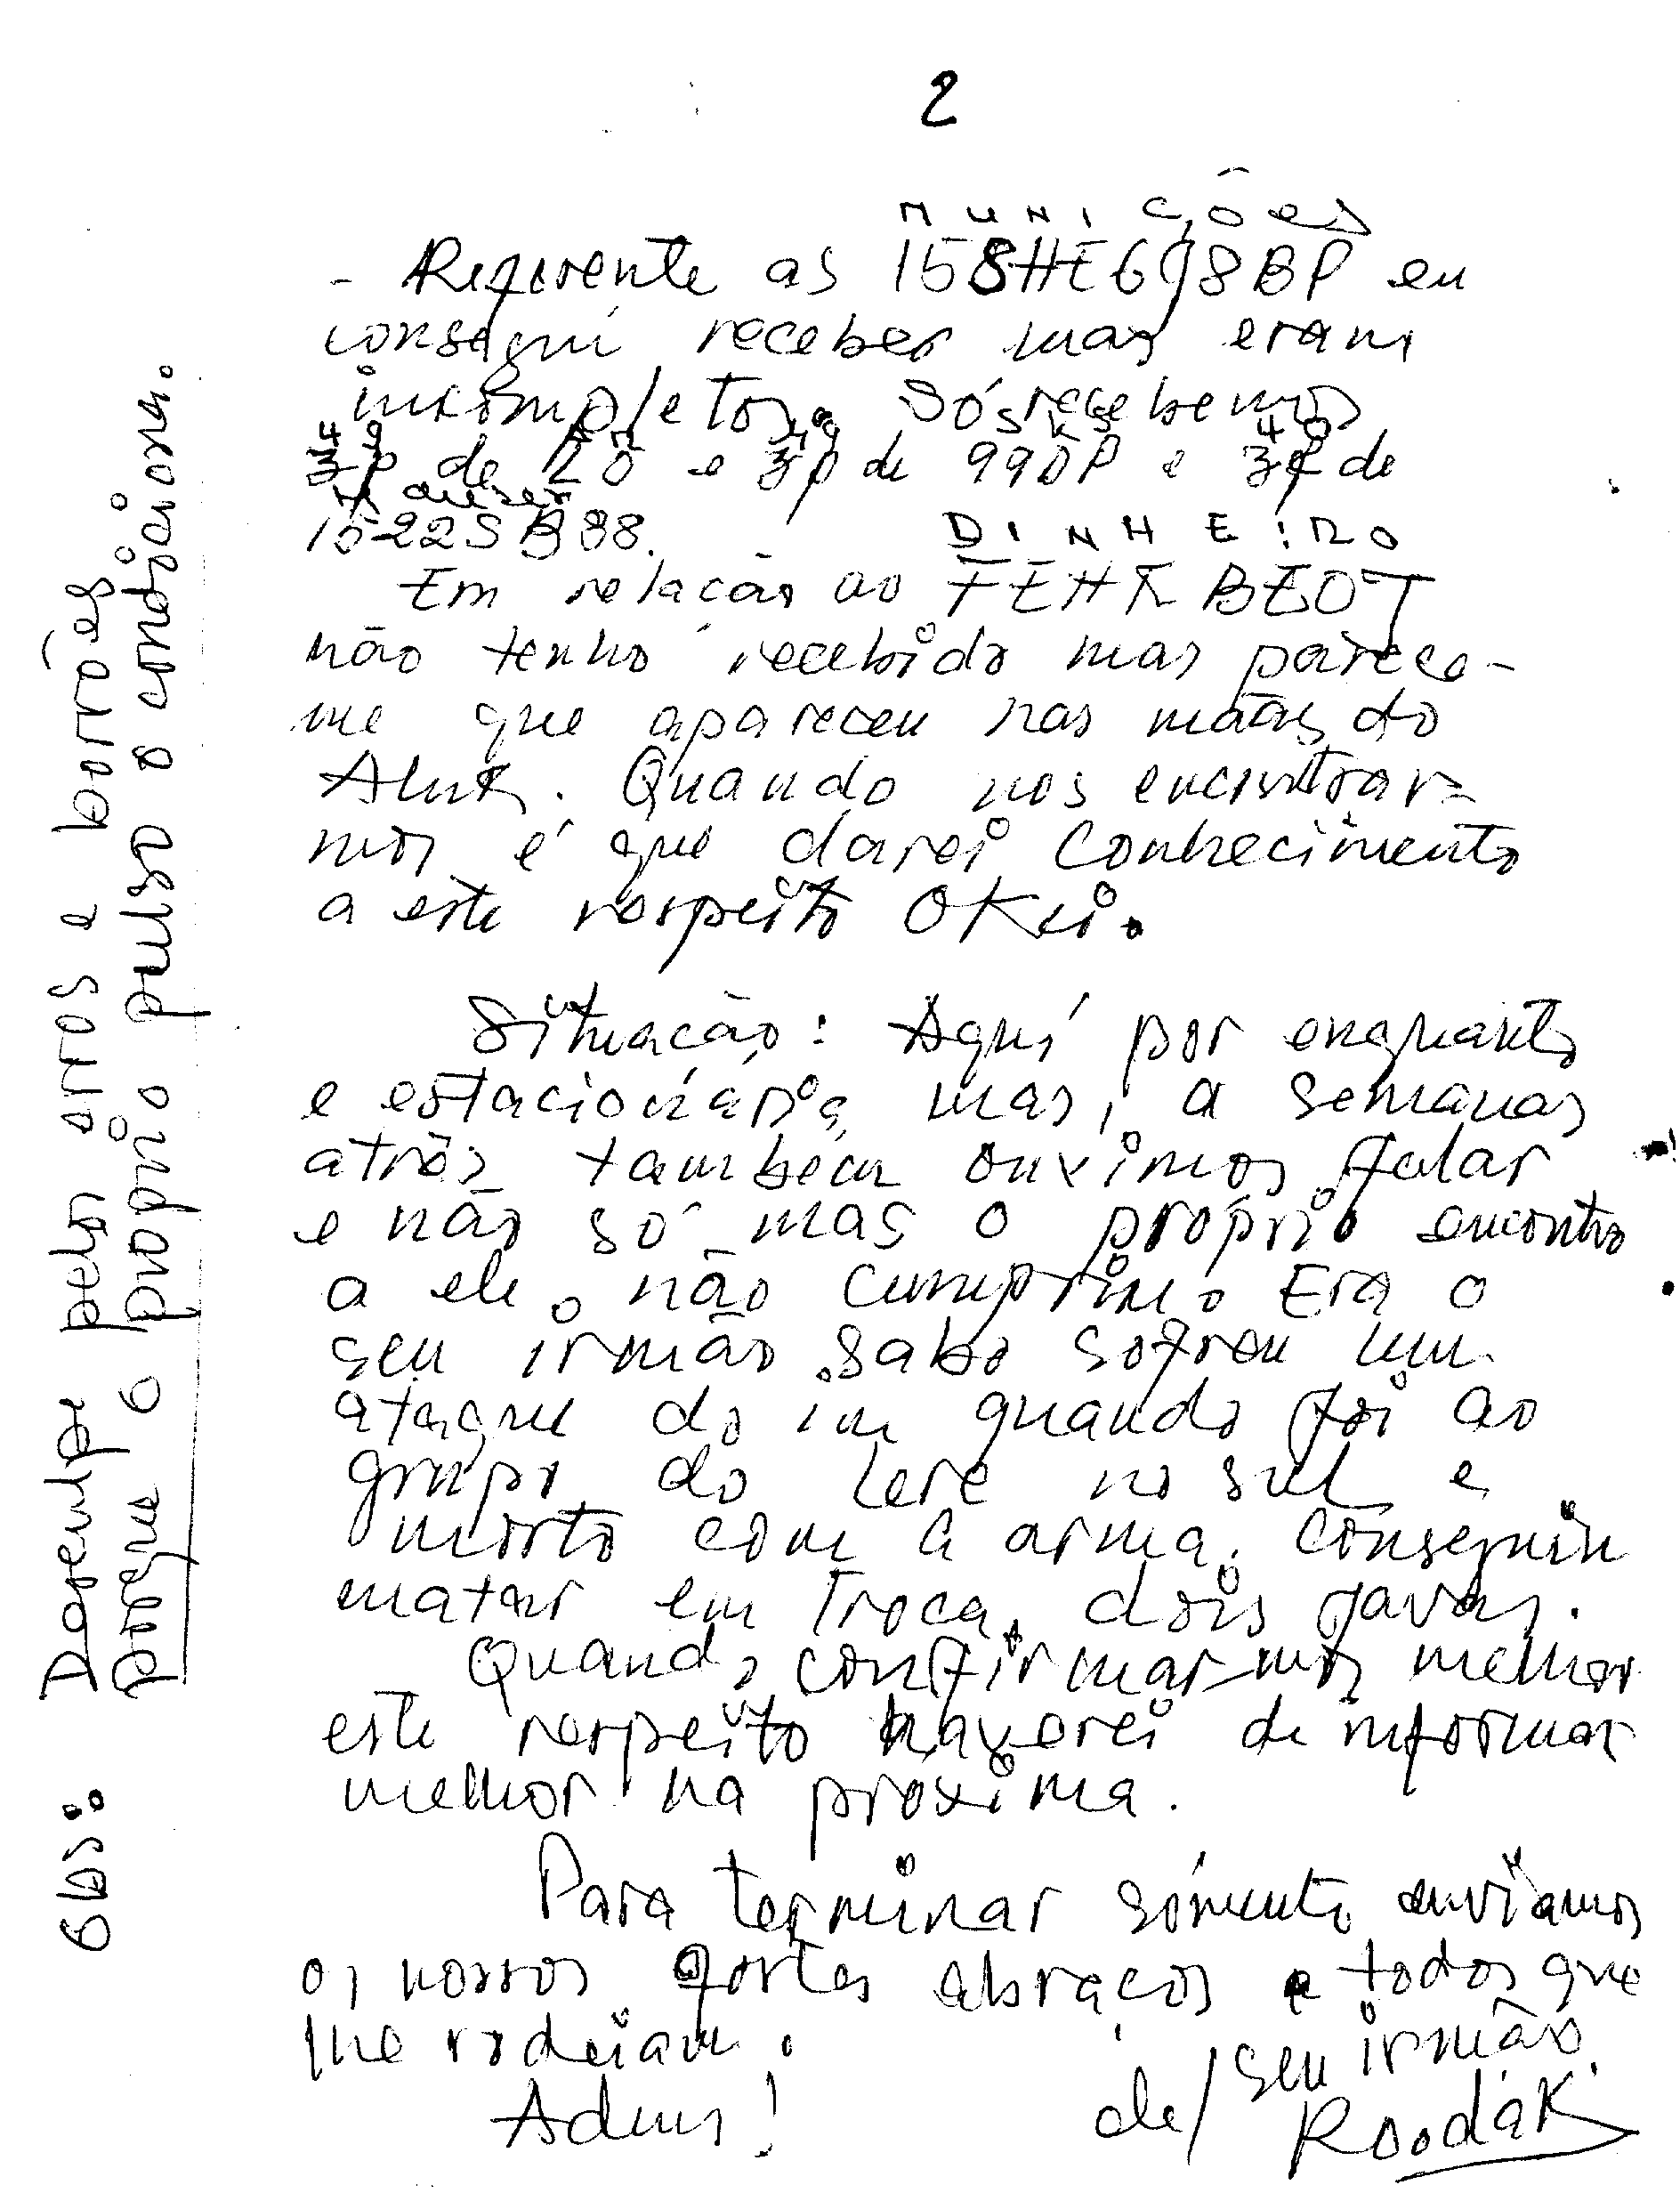 2
MUNIÇÕES
- Referente as 158HE698BP eu
conseguí receber mas eram
incompletos. Só recebemos
de e de 99DP e de
15-22SB38.
DINHEIRO
Em relacão ao FEHKBEOT
não tenho recebido mas parece-
me que apareceu nas mãos do
Aluk. Quando nos encontrar-
mos é que darei conhecimento
a este respeito OKei.
Situacão: Aquí por enquanto
e estacionária, mas, a semanas
atrás também ouvimos falar
e não só mas o próprio encontro
a ele. não cumpriu. Era o
seu irmão Sabo sofreu um
ataque do in quando foi ao
grupo do Lere no sul e
morto com a arma. Conseguiu
matar em troca, dois javas.
Quando confirmar-mos melhor
este respeito haverei de informar
melhor na proxima.
Para terminar sómente enviamos
os nossos fortes abraços e todos que
lhe rodeiam.
Adeus! de/ seu irmão
Roodak
Obs: Desculpe pelos erros e borrões
porque o proprio pulso o condiciona.